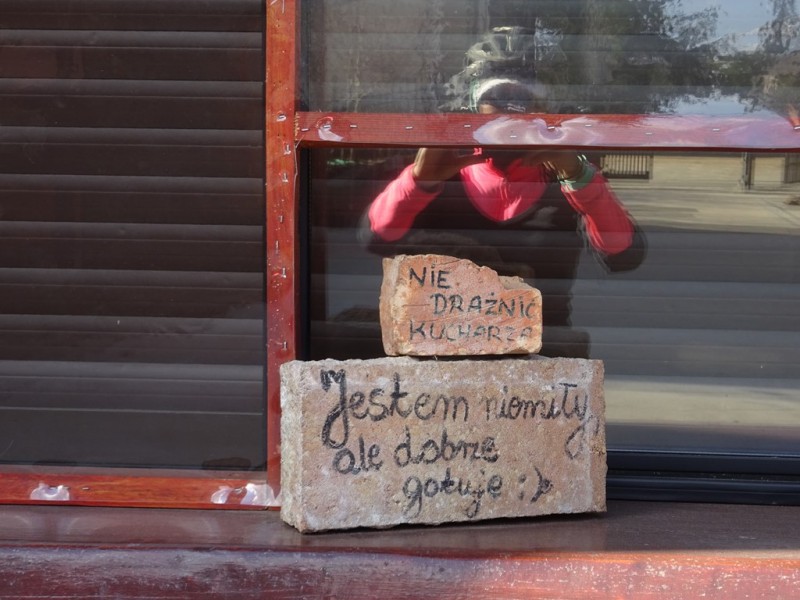 NIE
DRAŹNIĆ
KUCHARZA
Jestem niemiły,
ale dobrze
gotuję :)